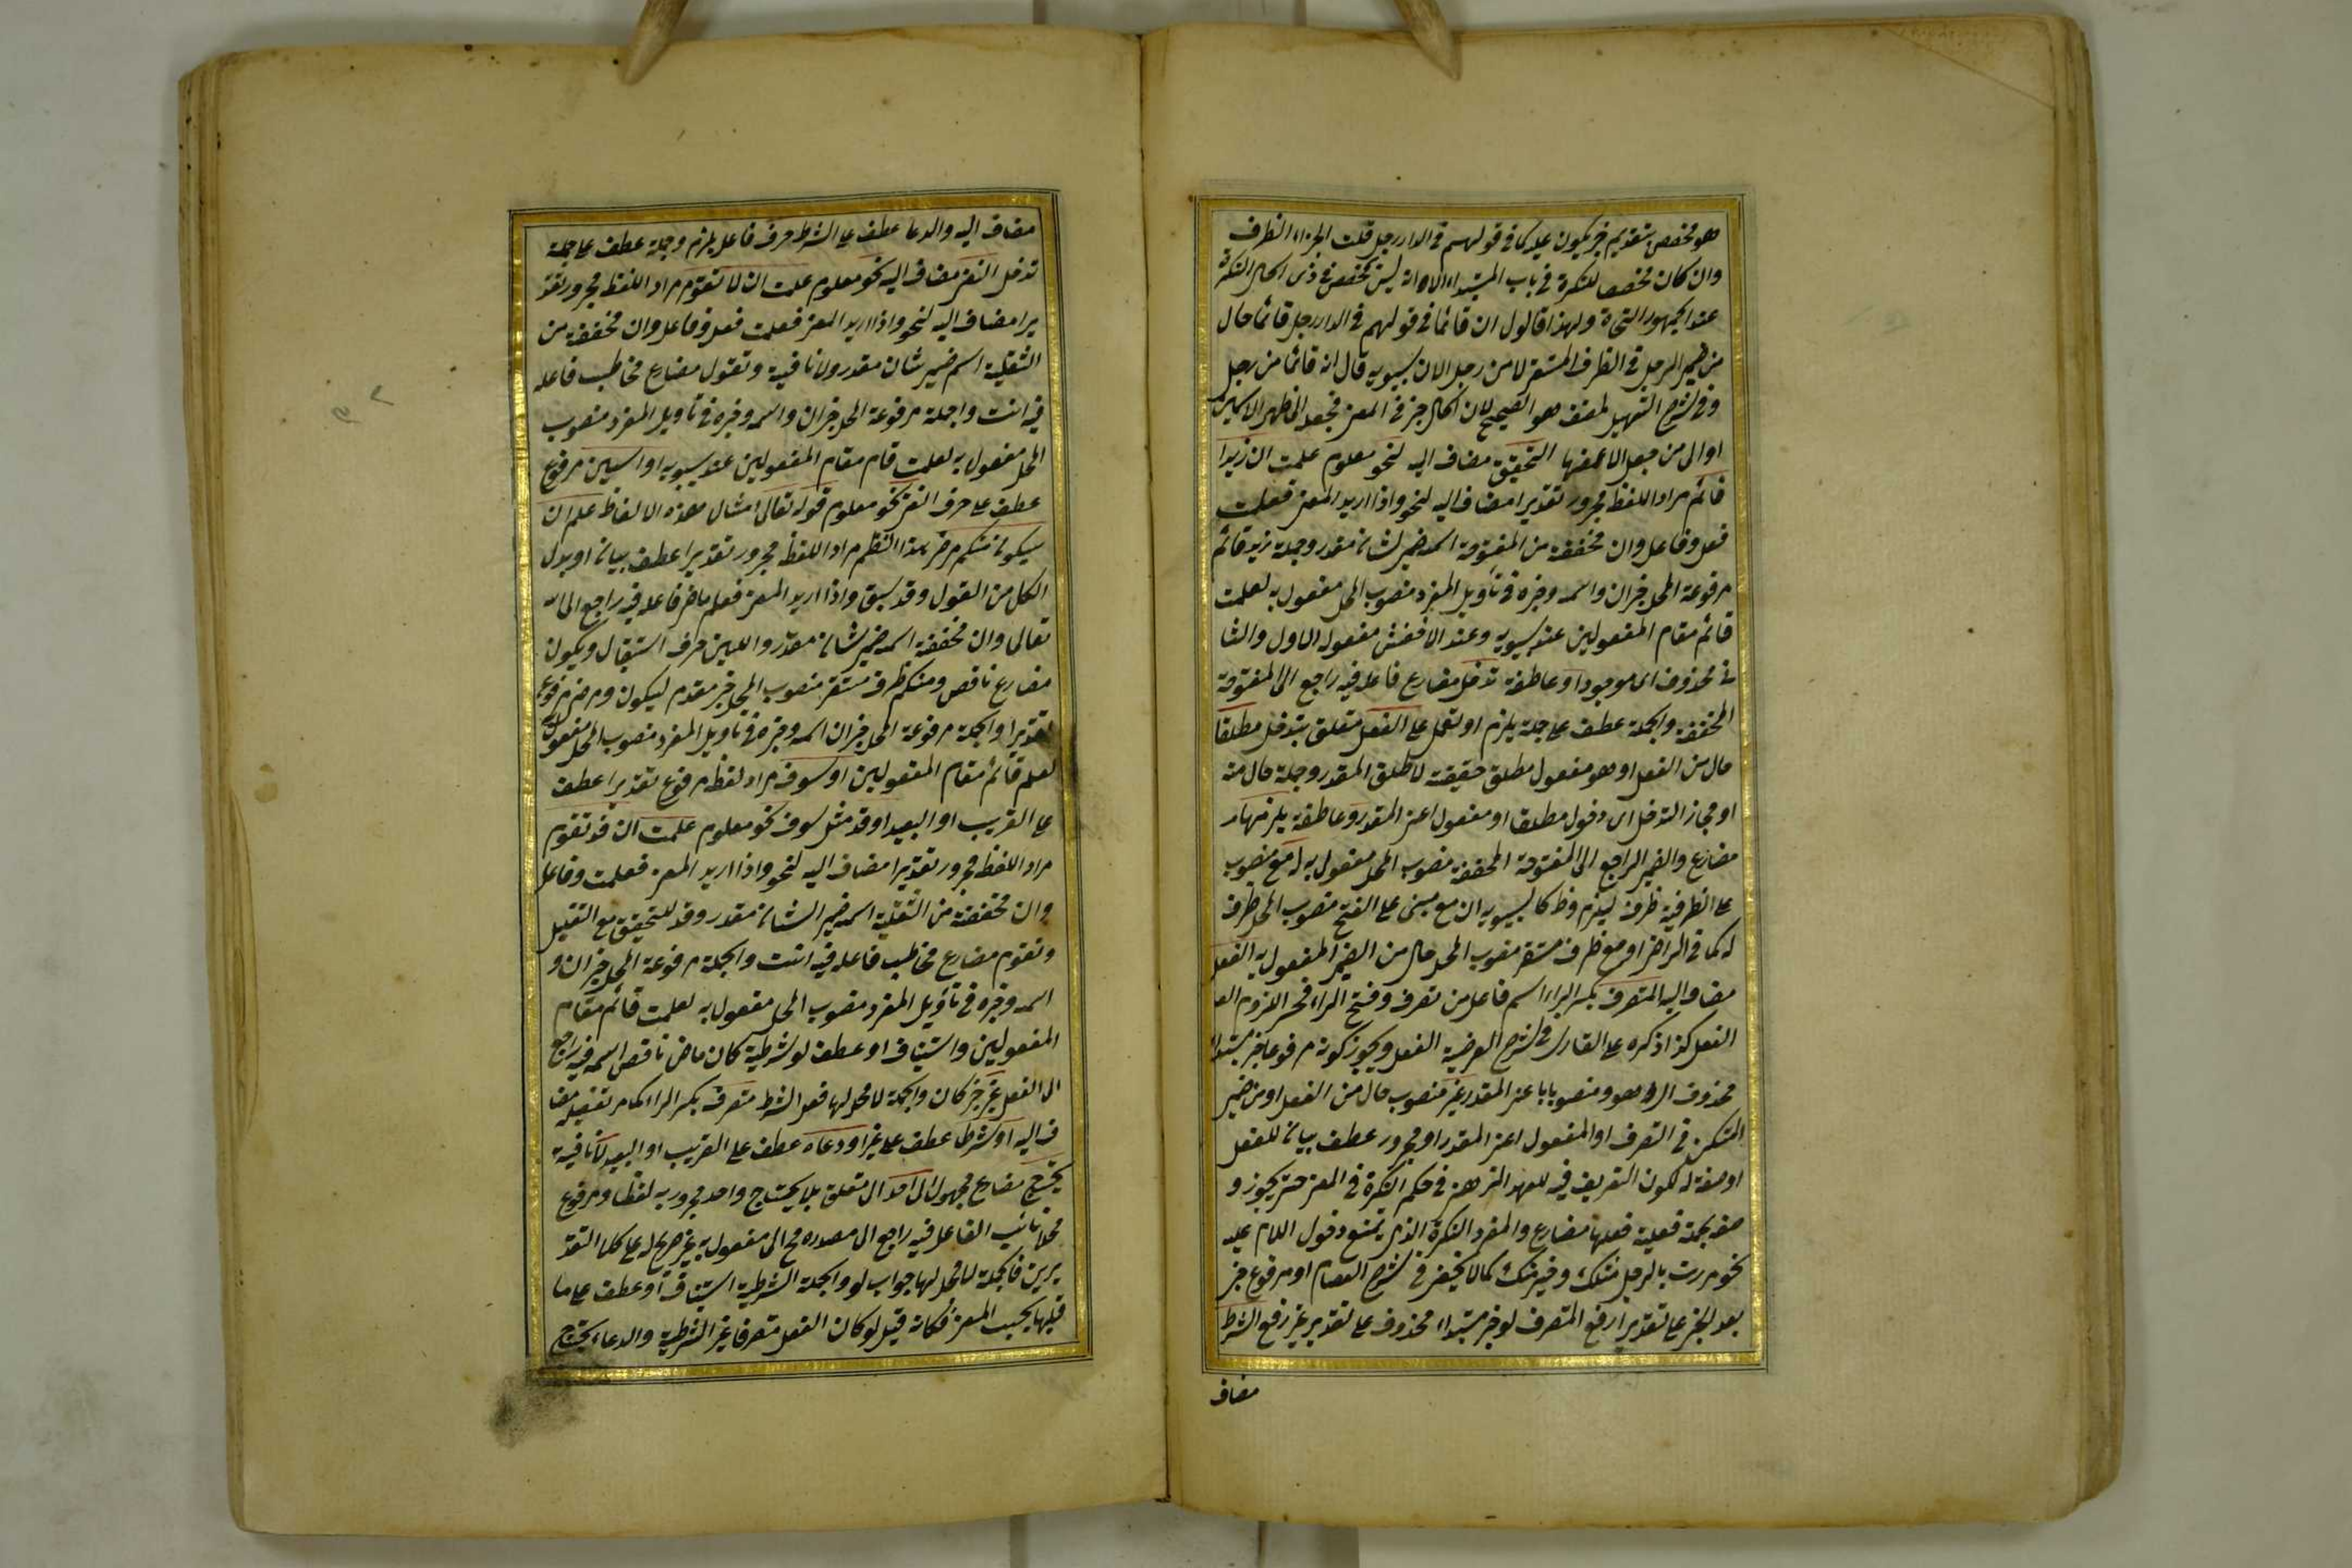 هو مخصص بتقديم خبر يكون عليه كما في قولهم في الدار رجل قلت الجزاء الظرف
وان كان مخصصا للنكرة في باب المبتداء الا انه ليس بمخصص في ذى الحال النكرة
عند الجمهور النحاة ولهذا قالوا ان قائما في قولهم في الدار رجل قائما حال
من ضمير الرجل في الظرف المستقر لا من رجل الا ان سيبويه قال انه قائما من رجل
وفي شرح التسهيل لمصنفه هو الصحيح لان الحال خبر في المعنى فجعله الى ظهر الاسمين
اولى من جعله لاغمضها التحقيق مضاف اليه لنحو معلوم علمت ان زيدا
قائم مراد اللفظ مجرور تقديرا مضاف اليه لنحو واذا اريد المعنى فعلمت
فعل وفاعل وان مخففة من المفتوحة اسمه ضمير لشان مقدر وجملة زيد قائم
مرفوعة المحل خبر ان واسمه وخبره في تأويل المفرد منصوب المحل مفعول به لعلمت
قائم مقام المفعولين عند سيبويه وعند الاخفش مفعوله الاول والثا
نى محذوف اى موجودا وعاطفة تدخل مضارع فاعله فيه راجع الى المفتوحة
المخففة والجملة عطف على جملة يلزم او تعمل على الفعل متعلق بتدخل مطلقا
حال من الفعل او هو مفعول مطلق حقيقة لاطلق المقدر وجملة حال منه
او مجاز التدخل اى دخول مطلقا او مفعول اعنى المقدر وعاطفة يلزمها
مضارع والضمير الراجع الى المفتوحة المخففة منصوب المحل مفعول به له مع منصوب
على الظرفية ظرف ليلزم وظ كا لسيبويه ان مع مبنى على الفتح منصوب المحل ظرف
له كما في الراضى او مع ظرف مستقر منصوب المحل حال من الضمير المفعول به الفعل
مضاف اليه المتصرف بكسر الراء اسم فاعل من تصرف وفتح الراء
الفعل كذا ذكره على القارى في شرح العرضية الفعل ويجوز كونه مرفوعا خبر مبتدا
محذوف اى هو ومنصوبا با عنى المقدر غير منصوب حال من الفعل او من ضمير
المتمكن في التصرف او المفعول اعنى المقدر او مجرور عطف بيان للفعل
او صفة له لكون التعريف فيه للعهد الذهنى في حكم النكرة في المعنى حتى يجوز و
صفه بجملة فعلية فعلها مضارع والمفرد النكرة الذى يمتنع دخول اللام عليه
نحو مررت بالرجل مثلك وخير منك كما لا يخفى في شرح العصام او مرفوع خبر
بعد الخبر على تقدير رفع المتصرف لو خبر مبتداء محذوف على تقدير غير رفع الشرط
مضاف
مضاف اليه والدعا عطف على الشرط حرف فاعل يلزم وجملة عطف على جملة
تدخل النفى مضاف اليه نحو معلوم علمت ان لا تقوم مراد اللفظ مجرور تقد
يرا مضاف اليه لنحو واذا اريد المعنى فعلمت فعل وفاعل وان مخففة من
الثقيلة اسم ضمير شان مقدر ولا نافية وتقول مضارع مخاطب فاعله
فيه انت والجملة مرفوعة المحل خبر ان واسمه وخبره في تأويل المفرد منصوب
المحل مفعول به لعلمت قام مقام المفعولين عند سيبويه او السين مرفوع
عطف على حرف النفى نحو معلوم قوله تعالى امثال هذه الالفاظ علم ان
سيكون منكم مرضى هذا النظم مراد اللفظ مجرور تقديرا عطف بيان او بدل
الكل من القول وقد سبق واذا اريد المعنى فعلم ماض فاعله فيه راجع الى الله
تعالى وان مخففة اسمه ضمير شان مقدر والسين حرف استقبال ويكون
مضارع ناقص ومنكم ظرف مستقر منصوب المحل خبر مقدم ليكون ومرضى مرفوع
تقديرا والجملة مرفوعة المحل خبر ان اسمه وخبره في تأويل المفرد منصوب المحل مفعول
لعلم قائم مقام المفعولين او سوف مراد لفظه مرفوع تقديرا عطف
على القريب او البعيد او قد مثل سوف نحو معلوم علمت ان قد تقوم
مراد اللفظ مجرور تقديرا مضاف اليه لنحو واذا اريد المعنى فعلمت وفاعل
وان مخففة من الثقيلة اسمه ضمير الشان مقدر وقد للتحقيق مع التقليل
وتقوم مضارع مخاطب فاعله فيه انت والجملة مرفوعة المحل خبر ان و
اسمه وخبره في تأويل المفرد منصوب المحل مفعول به لعلمت قائم مقام
المفعولين واستيناف او عطف لو شرطية كان ماض ناقص اسمه فيه راجع
الى الفعل غير خبر كان والجملة لا محل لها فعل الشرط متصرف بكسر الراء كما مر تفصيله مضا
ف اليه او شرطا عطف على غير او دعاء عطف على القريب او البعيد لا نافية
يحتج مضارع مجهول الى احد الى متعلق بلا يحتاج واحد مجرور به لفظا ومرفوع
محلا نائب الفاعل فيه راجع الى مصدره مح الى مفعول به غير صريح له على كلا التقد
يرين فالجملة لا محل لها جواب لو والجملة الشرطية استيناف او عطف على ما
قبلها بحسب المعنى فكانه قيل لو كان الفعل متصرفا غير الشرطية والدعاء يحتاج